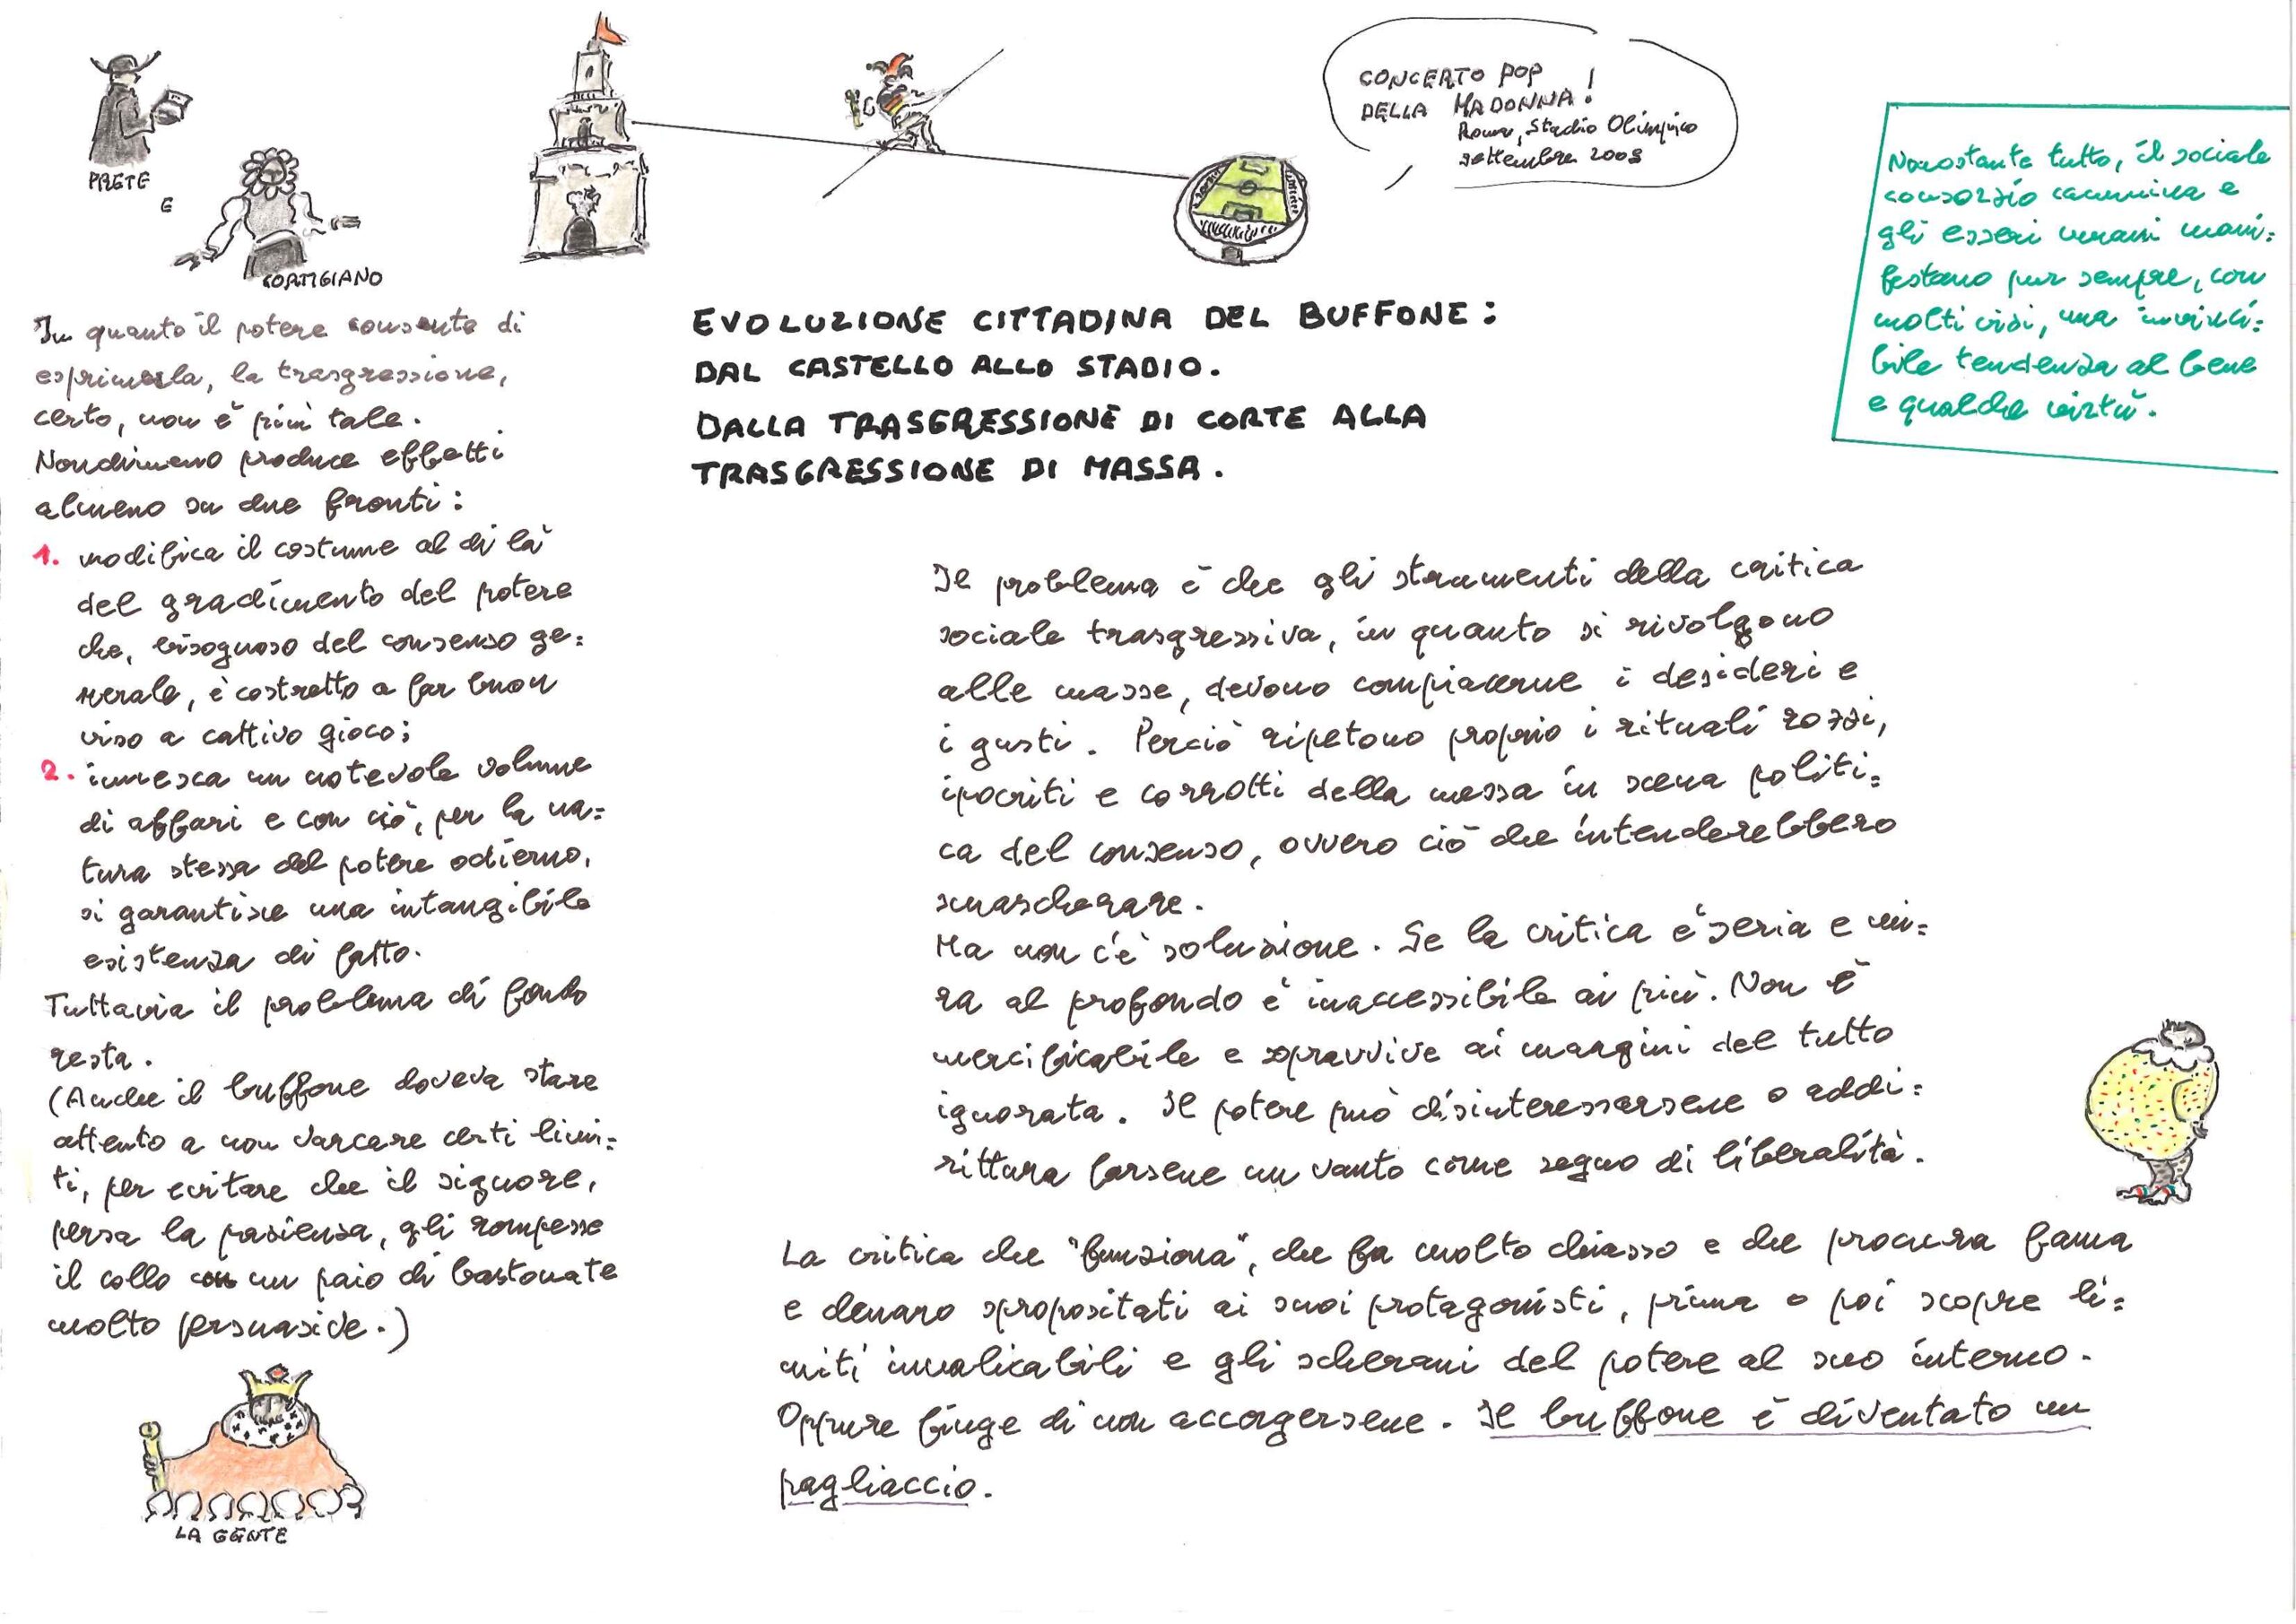 PRETE
E
CORTIGIANO
CONCERTO POP
DELLA MADONNA!
Roma, Stadio Olimpico
settembre 2008
Nonostante tutto, il sociale
consorzio cammina e
gli esseri umani mani=
festano pur sempre, con
molti visi, una invinci=
bile tendenza al bene
e qualche virtù.
EVOLUZIONE CITTADINA DEL BUFFONE:
DAL CASTELLO ALLO STADIO.
DALLA TRASGRESSIONE DI CORTE ALLA
TRASGRESSIONE DI MASSA.
In quanto il potere consente di
esprimerla, la trasgressione,
certo, non è più tale.
Nondimeno produce effetti
almeno su due fronti:
1. modifica il costume al di là
del gradimento del potere
che, bisognoso del consenso ge=
nerale, è costretto a far buon
viso a cattivo gioco;
2. innesca un notevole volume
di affari e con ciò, per la na=
tura stessa del potere odierno,
si garantisce una intangibile
esistenza di fatto.
Tuttavia il problema di fondo
resta.
(Anche il buffone doveva stare
attento a non varcare certi limi=
ti, per evitare che il signore,
persa la pazienza, gli rompesse
il collo con un paio di bastonate
molto persuasive.)
LA GENTE
Il problema è che gli strumenti della critica
sociale trasgressiva, in quanto si rivolgono
alle masse, devono compiacerne i desideri e
i gusti. Perciò ripetono proprio i rituali rozzi,
ipocriti e corrotti della messa in scena politi=
ca del consenso, ovvero ciò che intenderebbero
smascherare.
Ma non c'è soluzione. Se la critica è seria e mi=
ra al profondo è inaccessibile ai più. Non è
mercificabile e sopravvive ai margini del tutto
ignorata. Il potere può disinteressarsene o addi=
rittura farsene un vanto come segno di liberalità.
La critica che "funziona", che fa molto chiasso e che procura fama
e denaro spropositati ai suoi protagonisti, prima o poi scopre li=
miti invalicabili e gli scherani del potere al suo interno.
Oppure finge di non accorgersene. Il buffone è diventato un
pagliaccio.